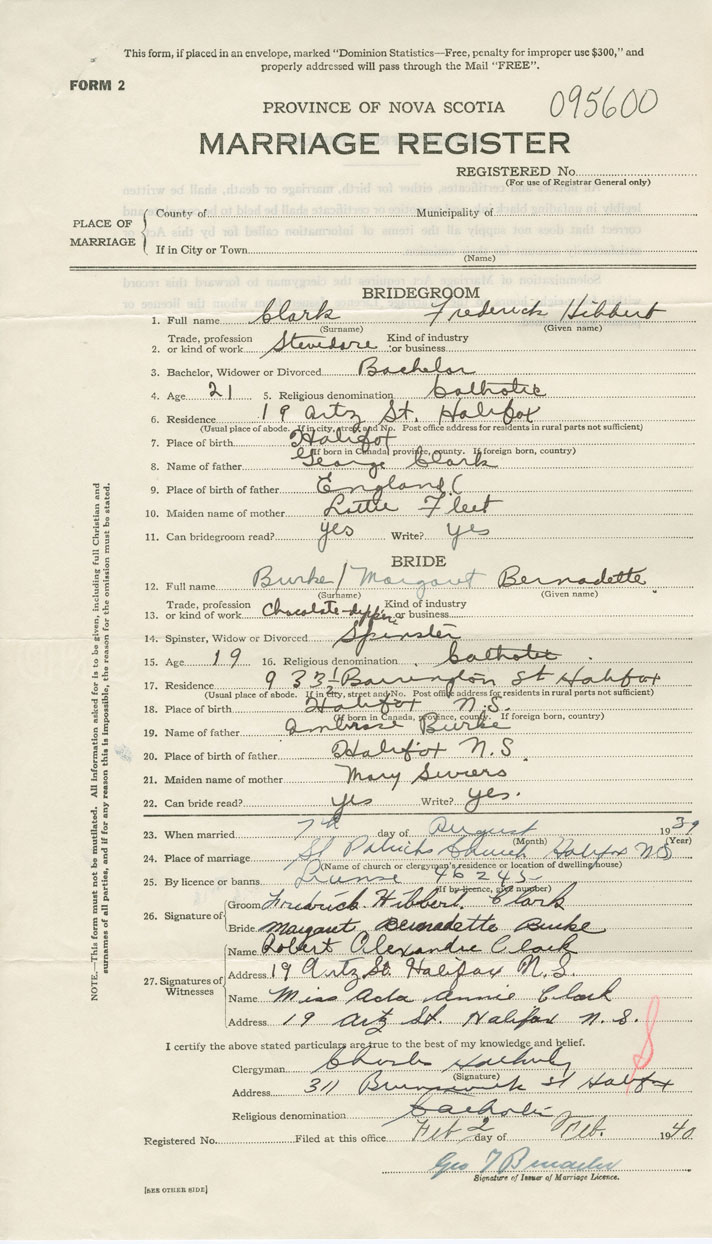 This form, if placed in an envelope, marked "Dominion Statistics—Free, penalty for improper use $300," and
properly addressed will pass through the Mail "FREE".
FORM 2
PROVINCE OF NOVA SCOTIA 095600
MARRIAGE REGISTER
REGISTERED No.
(For use of Registrar General only)
PLACE OF MARRIAGE
County of Municipality of
If in City or Town
(Name)
BRIDEGROOM
1. Full name Clark Frederick Hibbert
(Surname) (Given name)
2. Trade, profession or kind of work Stevedore Kind of industry or business
3. Bachelor, Widower or Divorced Bachelor
4. Age 21 5. Religious denomination Catholic
6. Residence 19 Artz St. Halifax
(Usual place of abode. If in city, street and No. Post office address for residents in rural parts not sufficient)
7. Place of birth Halifax
(If born in Canada, province, county. If foreign born, country)
8. Name of father George Clark
9. Place of birth of father England
10. Maiden name of mother Fleet
11. Can bridegroom read? yes Write? yes
BRIDE
12. Full name Burke / Margaret Bernadette
(Surname) (Given name)
13. Trade, profession or kind of work Chocolate-dipper Kind of industry or business
14. Spinster, Widow or Divorced Spinster
15. Age 19 16. Religious denomination Catholic
17. Residence 933½ Barrington St Halifax
(Usual place of abode. If in city, street and No. Post office address for residents in rural parts not sufficient)
18. Place of birth Halifax N.S.
(If born in Canada, province, county. If foreign born, country)
19. Name of father Ambrose Burke
20. Place of birth of father Halifax N.S.
21. Maiden name of mother Mary
22. Can bride read? yes Write? yes.
23. When married 7th day of August 1939
(Month) (Year)
24. Place of marriage St Patricks Church Halifax NS
(Name of church or clergyman's residence or location of dwelling house)
25. By licence or banns License 46245
(If by licence, give number)
26. Signature of
Groom Fredrick Hibbert Clark
Bride Margaret Bernadette Burke
27. Signatures of Witnesses
Name Robert Alexandre Clark
Address 19 Artz St. Halifax N.S.
Name Miss Ada Annie Clark
Address 19 Artz St. Halifax N.S.
I certify the above stated particulars are true to the best of my knowledge and belief.
Clergyman Charles
(Signature)
Address 311 Brunswick St Halifax
Religious denomination Catholic
Registered No. Filed at this office Feb 2 day of Feb. 1940
Geo
Signature of Issuer of Marriage Licence.
[SEE OTHER SIDE]
NOTE.—This form must not be mutilated. All information asked for is to be given, including full Christian and
surnames of all parties, and if for any reason this is impossible, the reason for the omission must be stated.